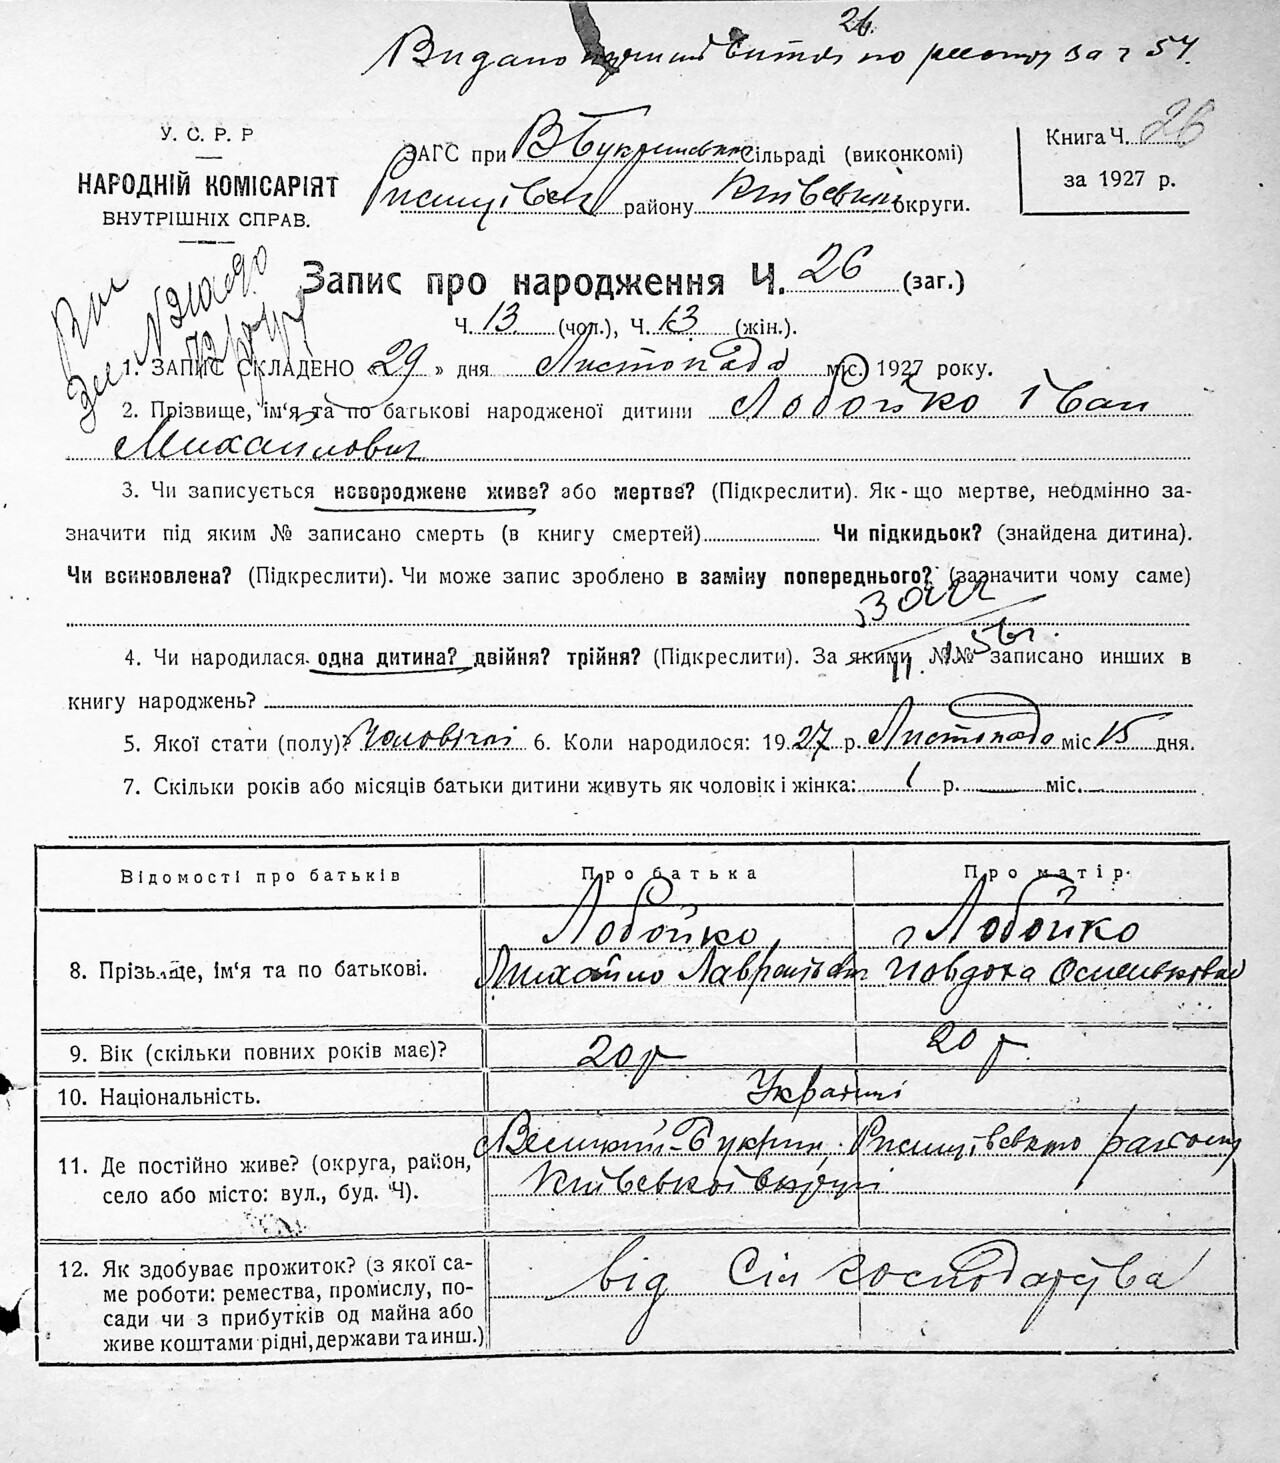 26.
Видано витяг по реєстру за ч 54.
У. С. Р. Р
НАРОДНІЙ КОМІСАРІЯТ
ВНУТРІШНІХ СПРАВ.
ЗАГС при В Букринськ Сільраді (виконкомі)
Ржищівськ району Київськ округи.
Книга Ч. 26
за 1927 р.
Запис про народження Ч. 26 (заг.)
Ч. 13 (чол.), Ч. 13 (жін.).
1. ЗАПИС СКЛАДЕНО «29» дня Листопада міс. 1927 року.
2. Прізвище, ім‘я та по батькові народженої дитини Лобойко Іван
Михайлович
3. Чи записується новороджене живе? або мертве? (Підкреслити). Як-що мертве, неодмінно за-
значити під яким № записано смерть (в книгу смертей) Чи підкидьок? (знайдена дитина).
Чи всиновлена? (Підкреслити). Чи може запис зроблено в заміну попереднього? (зазначити чому саме)
4. Чи народилася одна дитина? двійня? трійня? (Підкреслити). За якими №№ записано инших в
книгу народжень?
5. Якої стати (полу)? Чоловічої 6. Коли народилося: 1927 р. Листопада міс 15 дня.
7. Скільки років або місяців батьки дитини живуть як чоловік і жінка: 1 р. — міс. —
Відомості про батьків Про батька Про матір.
8. Прізвище, ім‘я та по батькові. Лобойко Лобойко
Михайло Явдоха
9. Вік (скільки повних років має)? 20 р 20 р
10. Національність. Україн
11. Де постійно живе? (округа, район, Великий-Букрин, Ржищівського району
село або місто: вул., буд. Ч). Київської округи
12. Як здобуває прожиток? (з якої са- від Сіл господарства
ме роботи: ремества, промислу, по-
сади чи з прибутків од майна або
живе коштами рідні, держави та инш.)